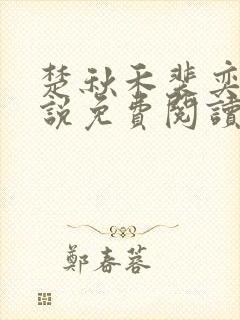 楚秋禾裴奕
說免費閱讀
鄭春蓉